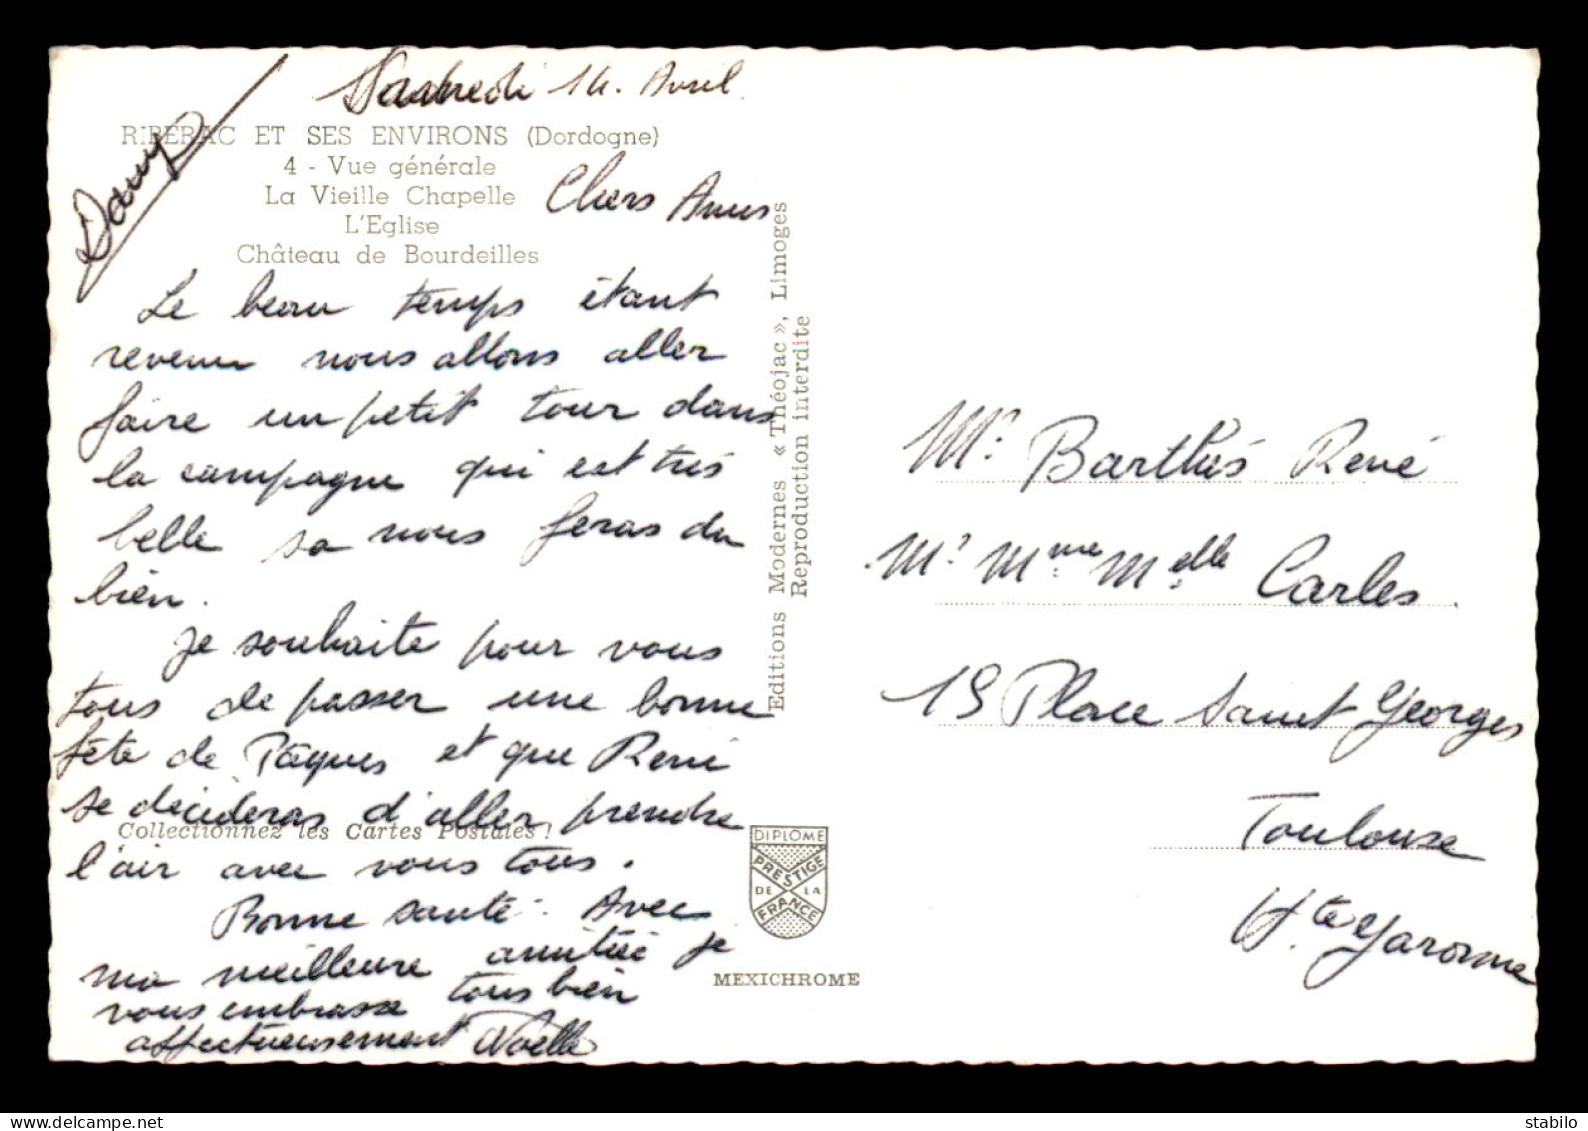 Vendredi 14. Avril.
RIBERAC ET SES ENVIRONS (Dordogne)
4 - Vue générale
La Vieille Chapelle
L'Eglise
Château de Bourdeilles
Dany
Chers Amis
Le beau temps étant
revenu nous allons aller
faire un petit tour dans
la campagne qui est très
belle sa nous feras du
bien.
Je souhaite pour vous
tous de passer une bonne
fête de Pâques et que René
se décideras d'aller prendre
l'air avec vous tous.
Bonne santé. Avec
ma meilleure amitié je
vous embrasse tous bien
affectueusement Noëlle
Collectionnez les Cartes Postales !
Editions Modernes « Théojac », Limoges
Reproduction interdite
DIPLOME
PRESTIGE
DE LA
FRANCE
MEXICHROME
Mr. Barthés René
Mr Mme Melle Carles.
19 Place Saint Georges
Toulouse
Hte Garonne
www.delcampe.net
stabilo